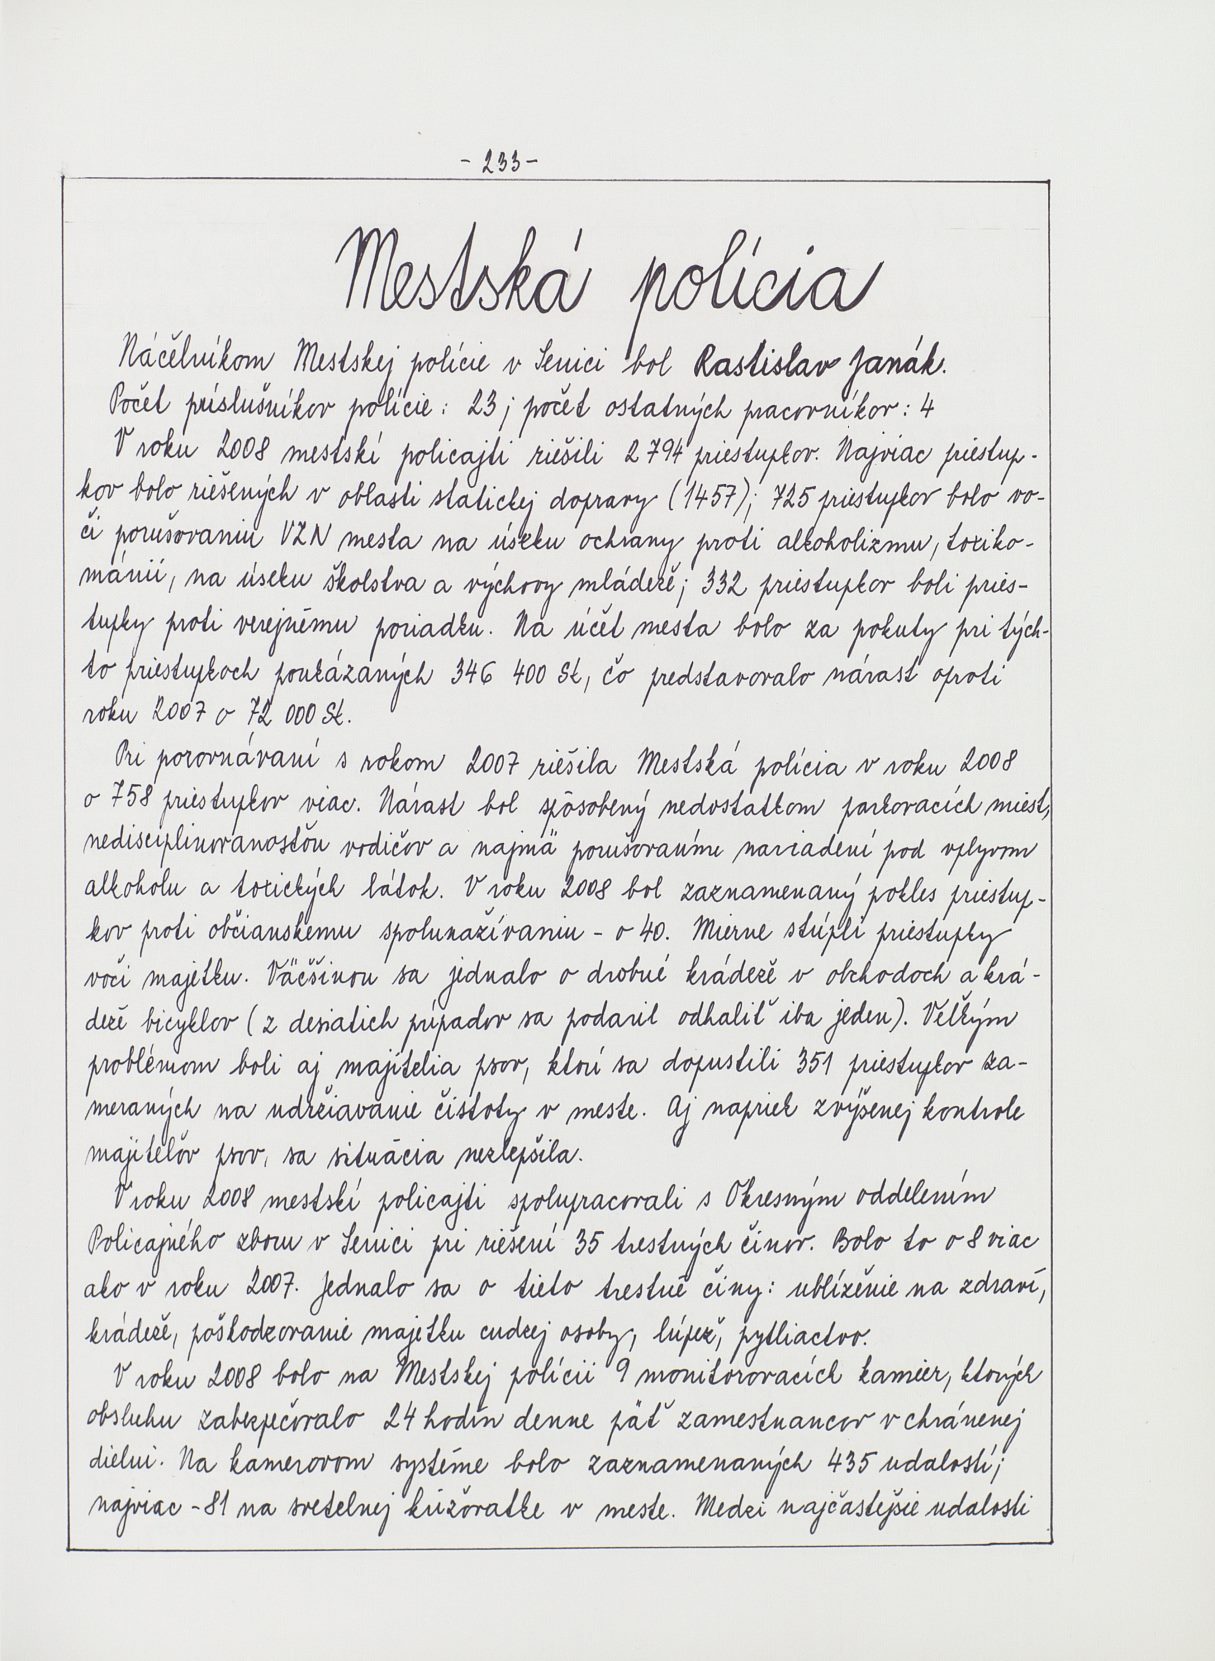 - 233 -
Mestská polícia
Náčelníkom Mestskej polície v Senici bol Rastislav Janák.
Počet príslušníkov polície: 23; počet ostatných pracovníkov: 4
V roku 2008 mestskí policajti riešili 2 794 priestupkov. Najviac priestup-
kov bolo riešených v oblasti statickej dopravy (1457); 725 priestupkov bolo vo-
či porušovaniu VZN mesta na úseku ochrany proti alkoholizmu, toxiko-
mánii, na úseku školstva a výchovy mládeže; 332 priestupkov boli pries-
tupky proti verejnému poriadku. Na účet mesta bolo za pokuty pri tých-
to priestupkoch poukázaných 346 400 Sk, čo predstavovalo nárast oproti
roku 2007 o 72 000 Sk.
Pri porovnávaní s rokom 2007 riešila Mestská polícia v roku 2008
o 758 priestupkov viac. Nárast bol spôsobený nedostatkom parkovacích miest,
nedisciplinovanosťou vodičov a najmä porušovaním nariadení pod vplyvom
alkoholu a toxických látok. V roku 2008 bol zaznamenaný pokles priestup-
kov proti občianskemu spolunažívaniu - o 40. Mierne stúpli priestupky
voči majetku. Väčšinou sa jednalo o drobné krádeže v obchodoch a krá-
deže bicyklov (z desiatich prípadov sa podaril odhaliť iba jeden). Veľkým
problémom boli aj majitelia psov, ktorí sa dopustili 351 priestupkov za-
meraných na udržiavanie čistoty v meste. Aj napriek zvýšenej kontrole
majiteľov psov, sa situácia nezlepšila.
V roku 2008 mestskí policajti spolupracovali s Okresným oddelením
Policajného zboru v Senici pri riešení 35 trestných činov. Bolo to o 8 viac
ako v roku 2007. Jednalo sa o tieto trestné činy: ublíženie na zdraví,
krádeže, poškodzovanie majetku cudzej osoby, lúpež, pytliactvo.
V roku 2008 bolo na Mestskej polícii 9 monitorovacích kamier, ktorých
obsluhu zabezpečovalo 24 hodín denne päť zamestnancov v chránenej
dielni. Na kamerovom systéme bolo zaznamenaných 435 udalostí;
najviac - 81 na svetelnej križovatke v meste. Medzi najčastejšie udalosti